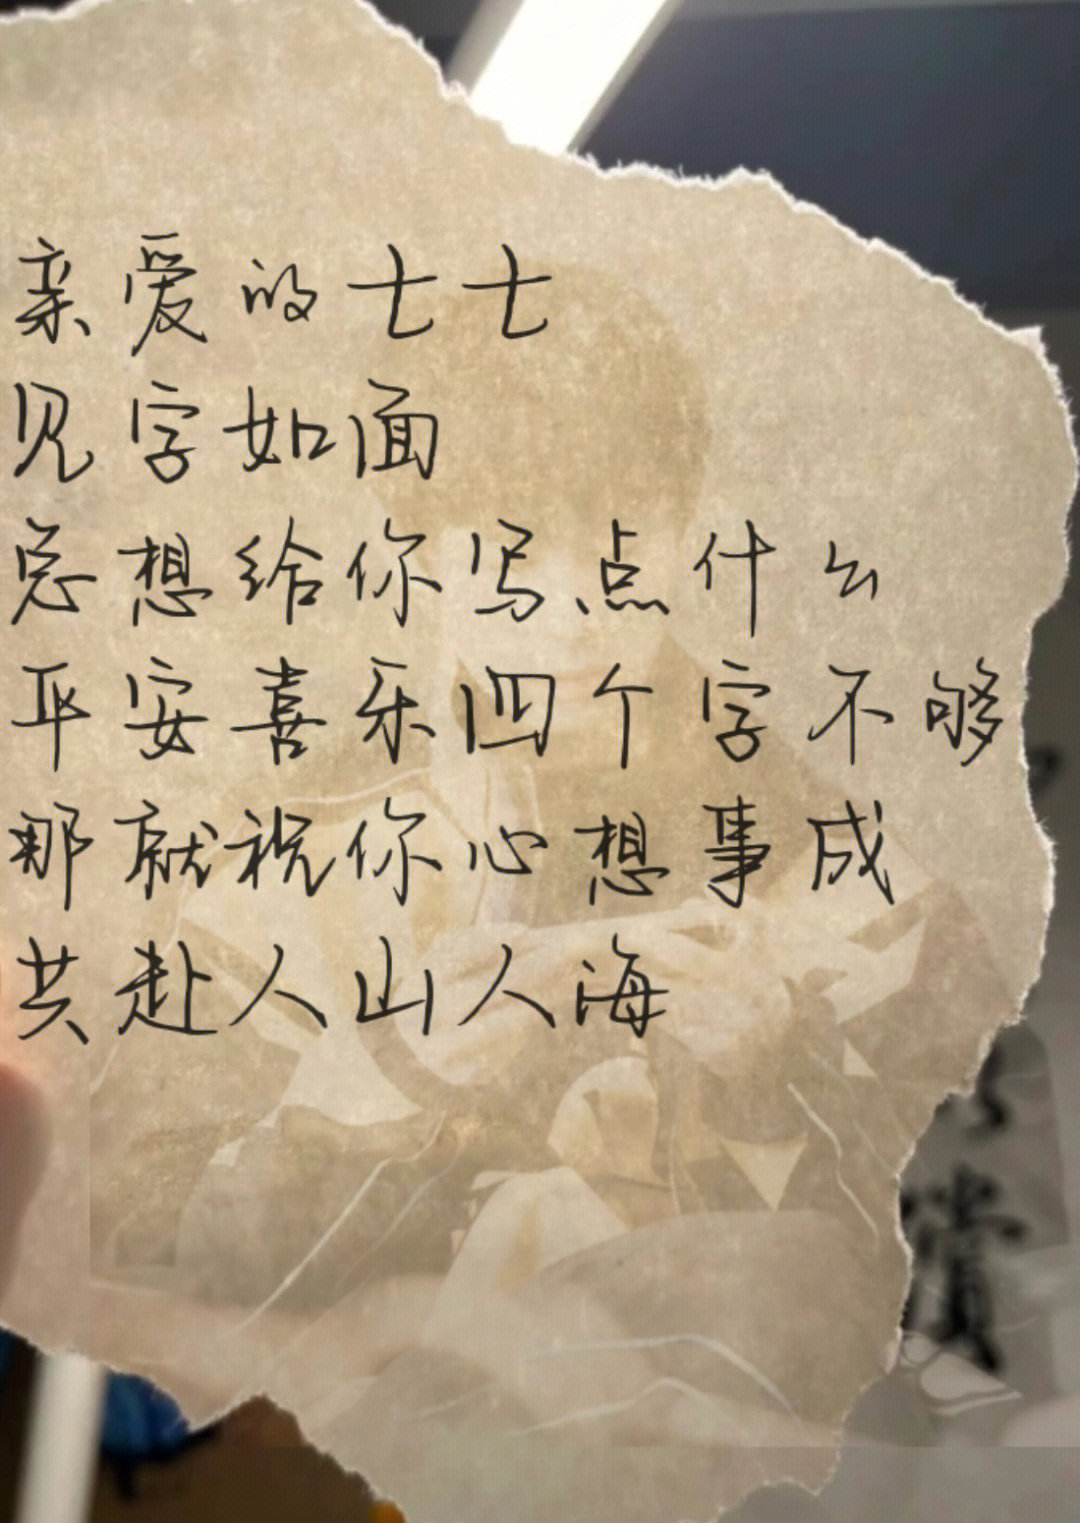 亲爱的七七
见字如面
总想给你写点什么
平安喜乐四个字不够
那就祝你心想事成
共赴人山人海
赏